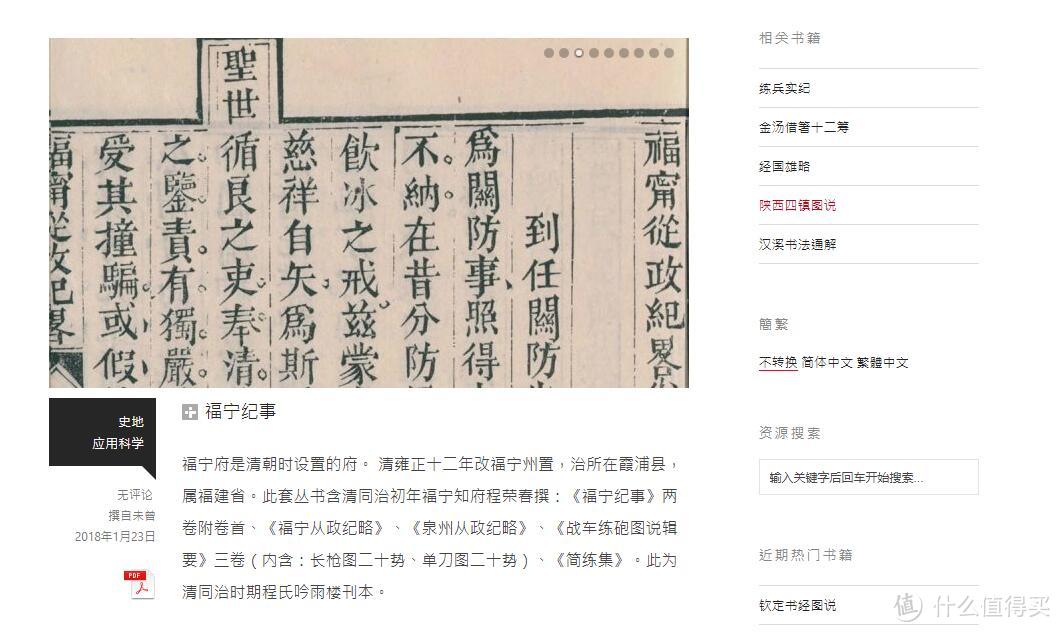 福甯從政紀畧
到任關防
爲關防事照得
不納在昔分防
飲冰之戒兹蒙
慈祥自矢爲斯
聖世
循良之吏奉清
之鑒責有獨嚴
受其撞騙或假
福甯從政紀畧
史地
应用科学
无评论
撰自未曾
2018年1月23日
PDF
福宁纪事
福宁府是清朝时设置的府。 清雍正十二年改福宁州置，治所在霞浦县，
属福建省。此套丛书含清同治初年福宁知府程荣春撰：《福宁纪事》两
卷附卷首、《福宁从政纪略》、《泉州从政纪略》、《战车练砲图说辑
要》三卷（内含：长枪图二十势、单刀图二十势）、《简练集》。此为
清同治时期程氏吟雨楼刊本。
相关书籍
练兵实纪
金汤借箸十二筹
经国雄略
陕西四镇图说
汉溪书法通解
簡繁
不转换 简体中文 繁體中文
资源搜索
输入关键字后回车开始搜索...
近期热门书籍
钦定书经图说
值 什么值得买